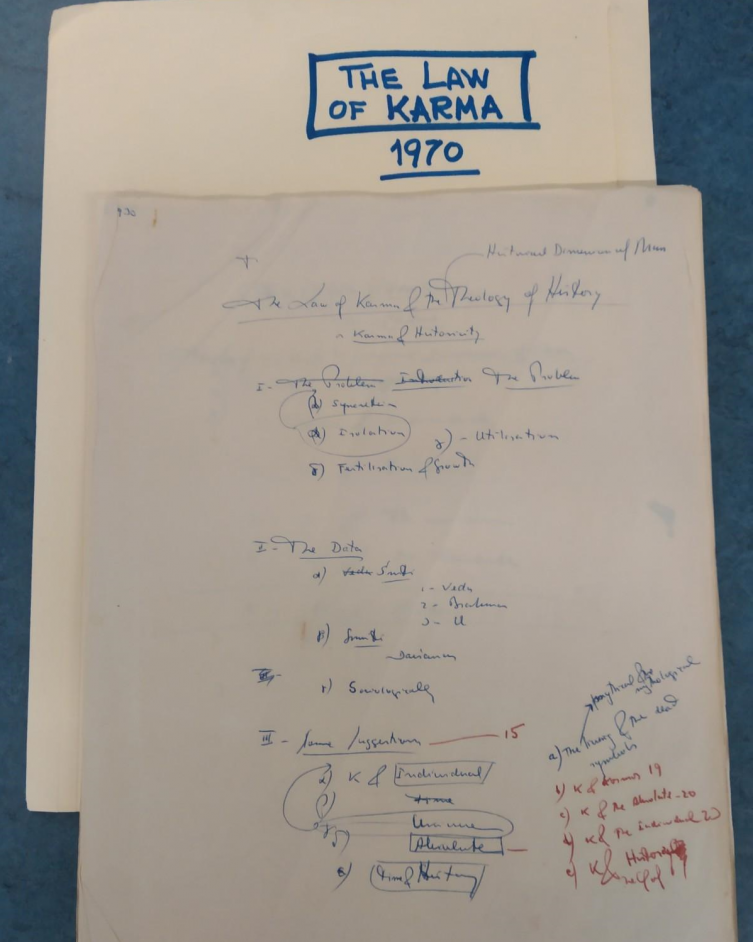 THE LAW
OF KARMA
1970
930
Historical Dimension of Man
The Law of Karma & the Theology of History
Karma & Historicity
I - The Problem Introduction The Problem
Syncretism
Isolation
γ) - Utilisation
Fertilisation & Growth
II - The Data
α) Veda Śruti
1 - Veda
2 - Brahman
3 - U
β) Smriti
Darśanas
III -
γ) Sociologically
III - Some Suggestions 15
α) K & Individual
β) Time
Universe
Absolute
Time & History
a) The living & the dead
symbols
b) K & Cosmos 19
c) K & the Absolute - 20
K & the Individual 20
e) K & Historicity